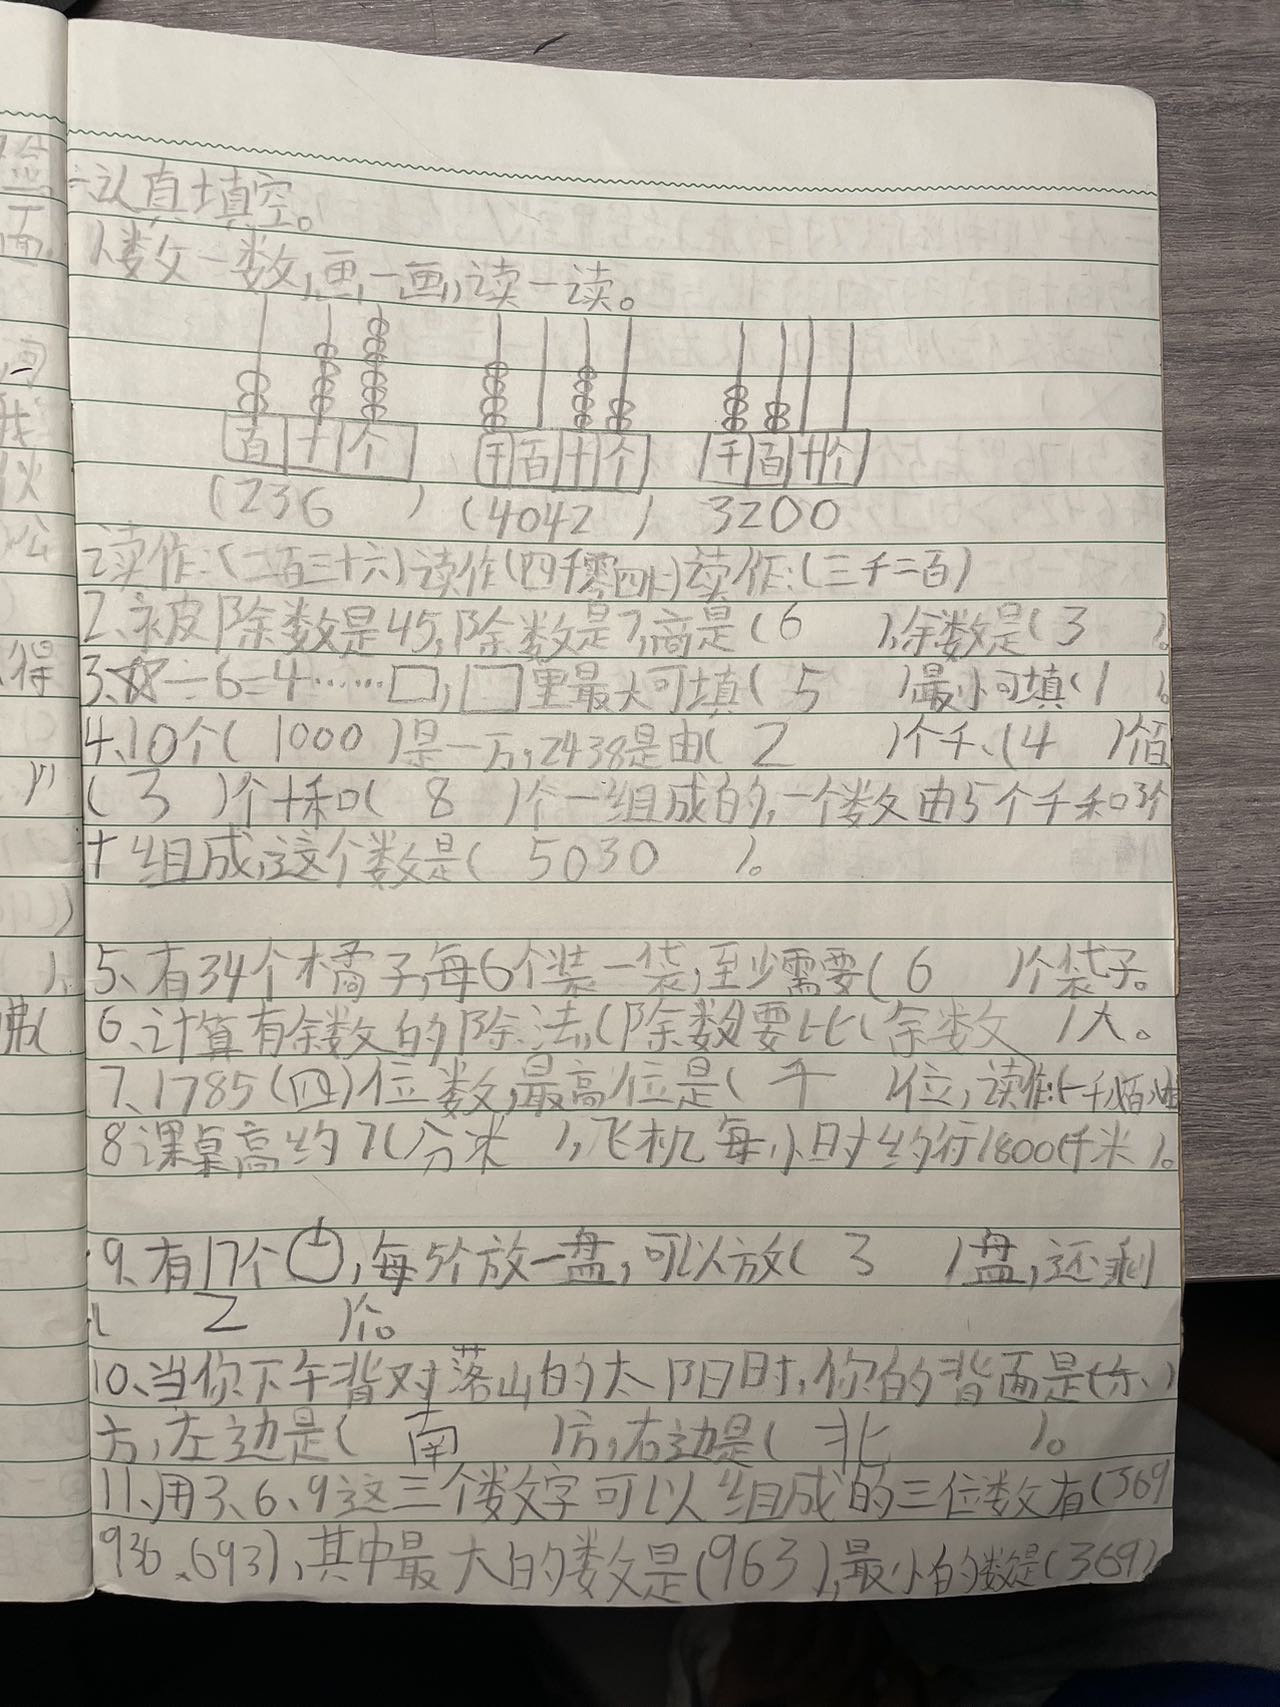 一认真填空。
1、数一数,画一画,读一读。
百十个 千百十个 千百十个
(236) (4042) 3200
读作:(二百三十六)读作(四千零四十二)读作:(三千二百)
2、被除数是45,除数是7,商是(6),余数是(3)。
3、☆÷6=4……□,□里最大可填(5)最小可填(1)。
4、10个(1000)是一万,2438是由(2)个千、(4)个百
(3)个十和(8)个一组成的,一个数由5个千和3个
十组成,这个数是(5030)。
5、有34个橘子,每6个装一袋,至少需要(6)个袋子。
6、计算有余数的除法,(除数)要比(余数)大。
7、1785(四)位数,最高位是(千)位,读作:(一千七百八
8课桌高约7(分米),飞机每小时约行1800(千米)。
9、有17个,每5个放一盘,可以放(3)盘,还剩
(2)个。
10、当你下午背对落山的太阳时,你的背面是(东)
方,左边是(南)方,右边是(北)。
11、用3、6、9这三个数字可以组成的三位数有(369
936、693),其中最大的数是(963),最小的数是(369)